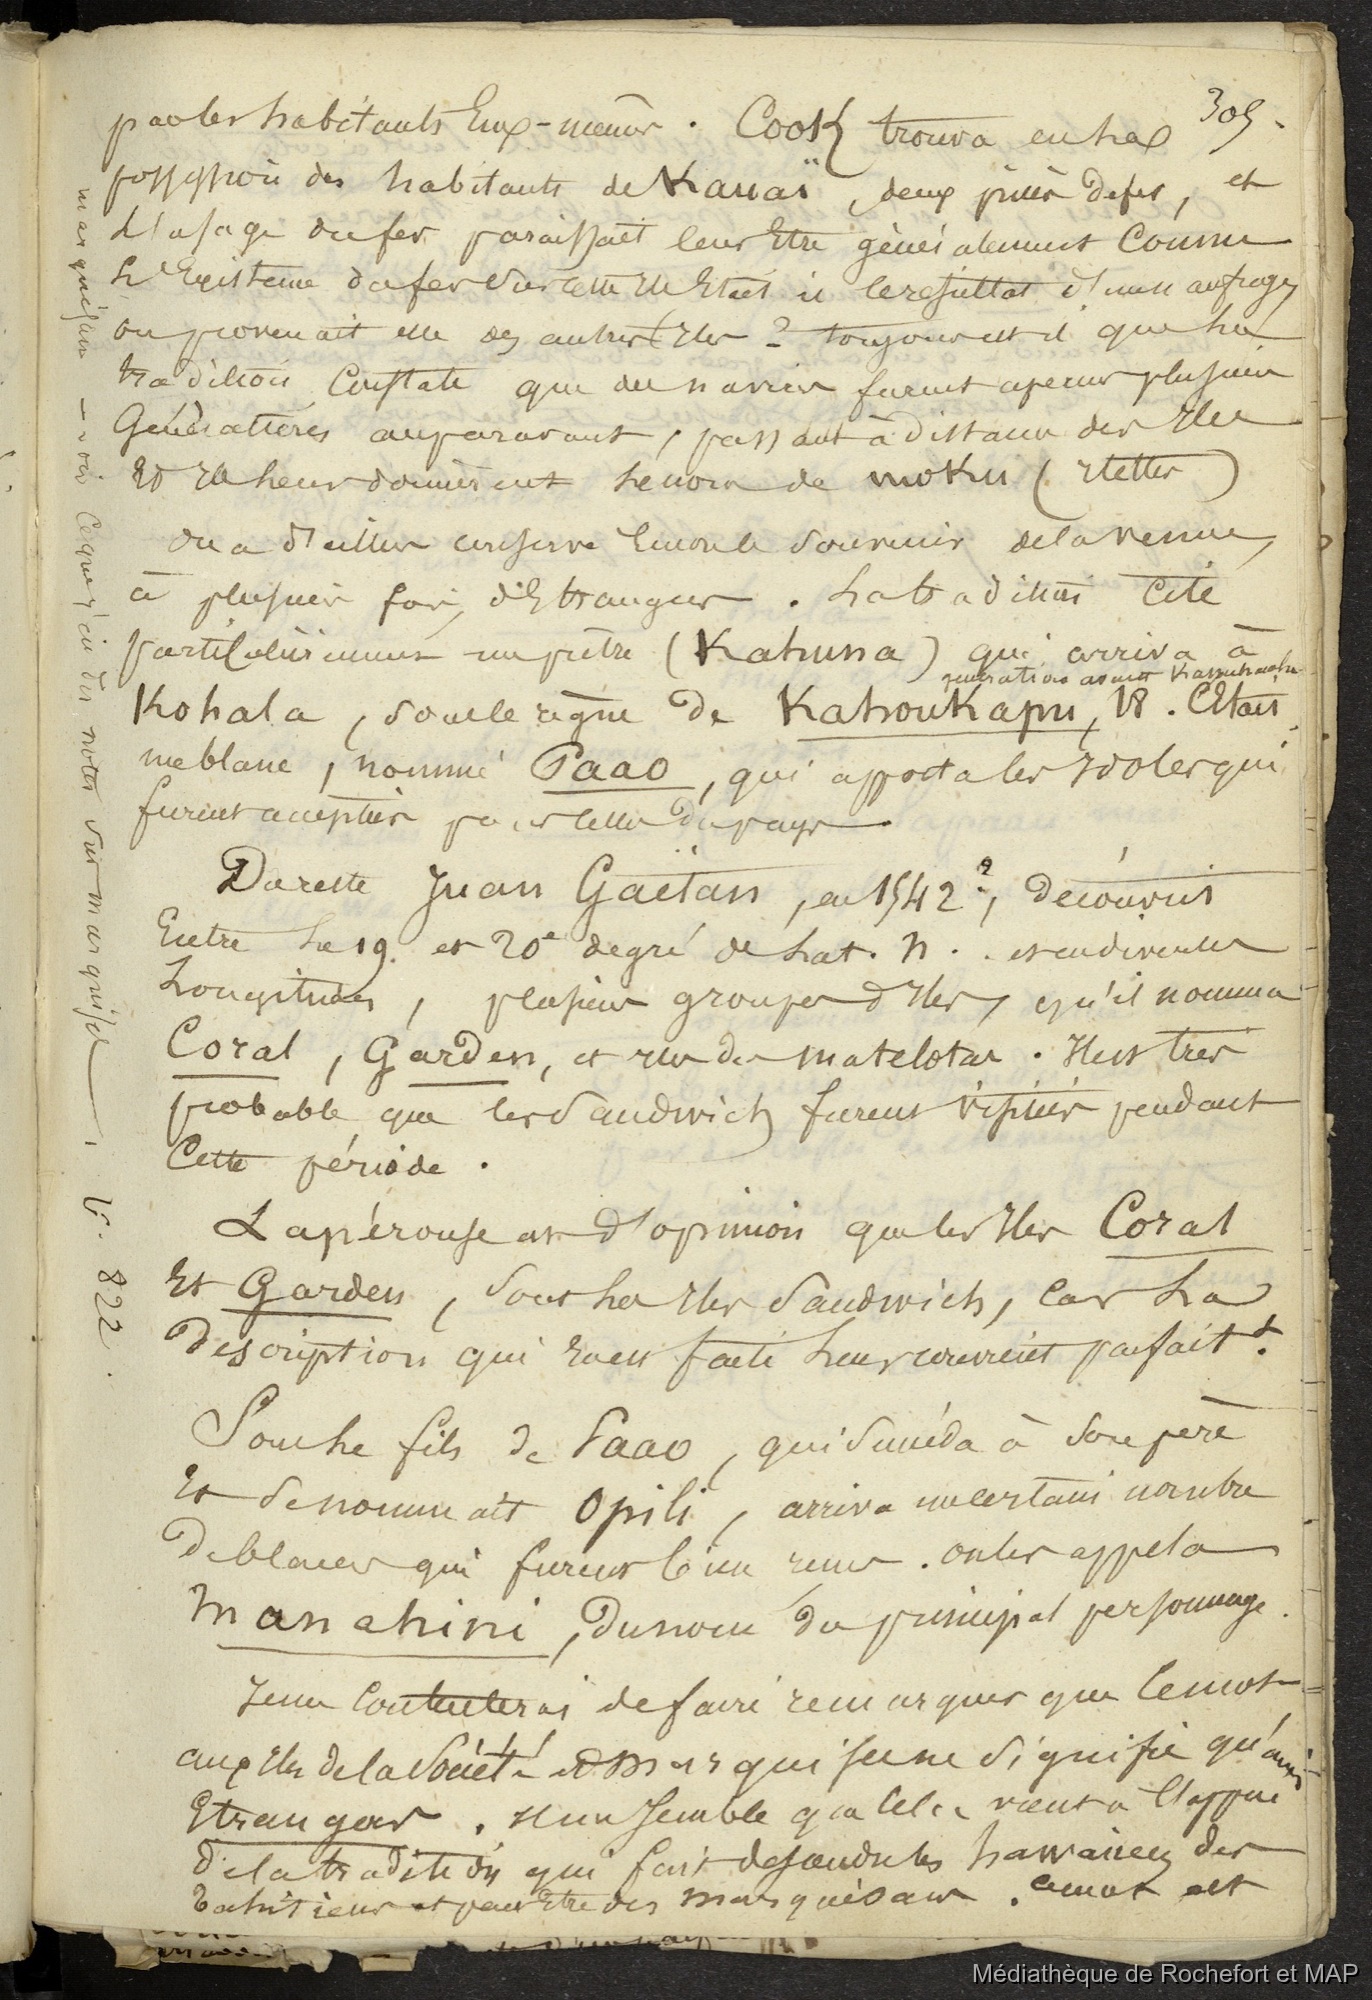 305.
par les habitants Eux-mêmes. Cook trouva en la
possession des habitants de Kauaï, deux pièces de fer, et
L'usage du fer paraissait leur Etre généralement Connu
L'Existence du fer sur cette Ile Etait il le résultat d'un naufrage,
ou provenait elle des autres Iles ? toujours est il que la
tradition Constate que des navires furent aperçus plusieurs
Générations auparavant, passant à distance des Iles
Et Ils leur donnèrent le nom de moku (Ilettes)
on a d'ailleurs conservé Encore le Souvenir de la venue,
à plusieurs fois, d'Etrangers. La tradition Cite
particulièrement un prêtre (Kahuna) qui arriva à
Kohala, sous le règne de Kahoukapu, 18 générations avant . C'Etait
un blanc, nommé Paao, qui apporta les Idoles qui
furent acceptées par celles du pays.
Du reste Juan Gaëtan, en 1542 ?, découvrit
Entre Le 19. et 20e degré de Lat. N. et en diverses
Longitudes, plusieurs groupes d'Iles, qu'il nomma
Coral, Garden, et Iles des matelotas. Il est très
probable que les Sandwich furent visitées pendant
Cette période.
Lapérouse est d'opinion que les Iles Coral
Et Garden, sont les Iles Sandwich, car La
Description qui En est faite leur convient parfaitt.
Sous le fils de Paao, qui succéda à son père
Et se nommait Opili, arriva un certain nombre
De blancs qui furent bien reçus. on les appela
Manahini, Du nom du principal personnage.
Je me Contenterai de faire remarquer que le mot
aux Iles de la Société et Marquises ne signifie qu'
Etranger. Il me semble que cela vient à l'appui
De la tradition qui fait descendre les hawaiiens des
tahitiens et peut Etre des marquésans. Ce mot est
marquésien – voir Ce que j'ai dit notes sur marquises, V. 822.
Médiathèque de Rochefort et MAP